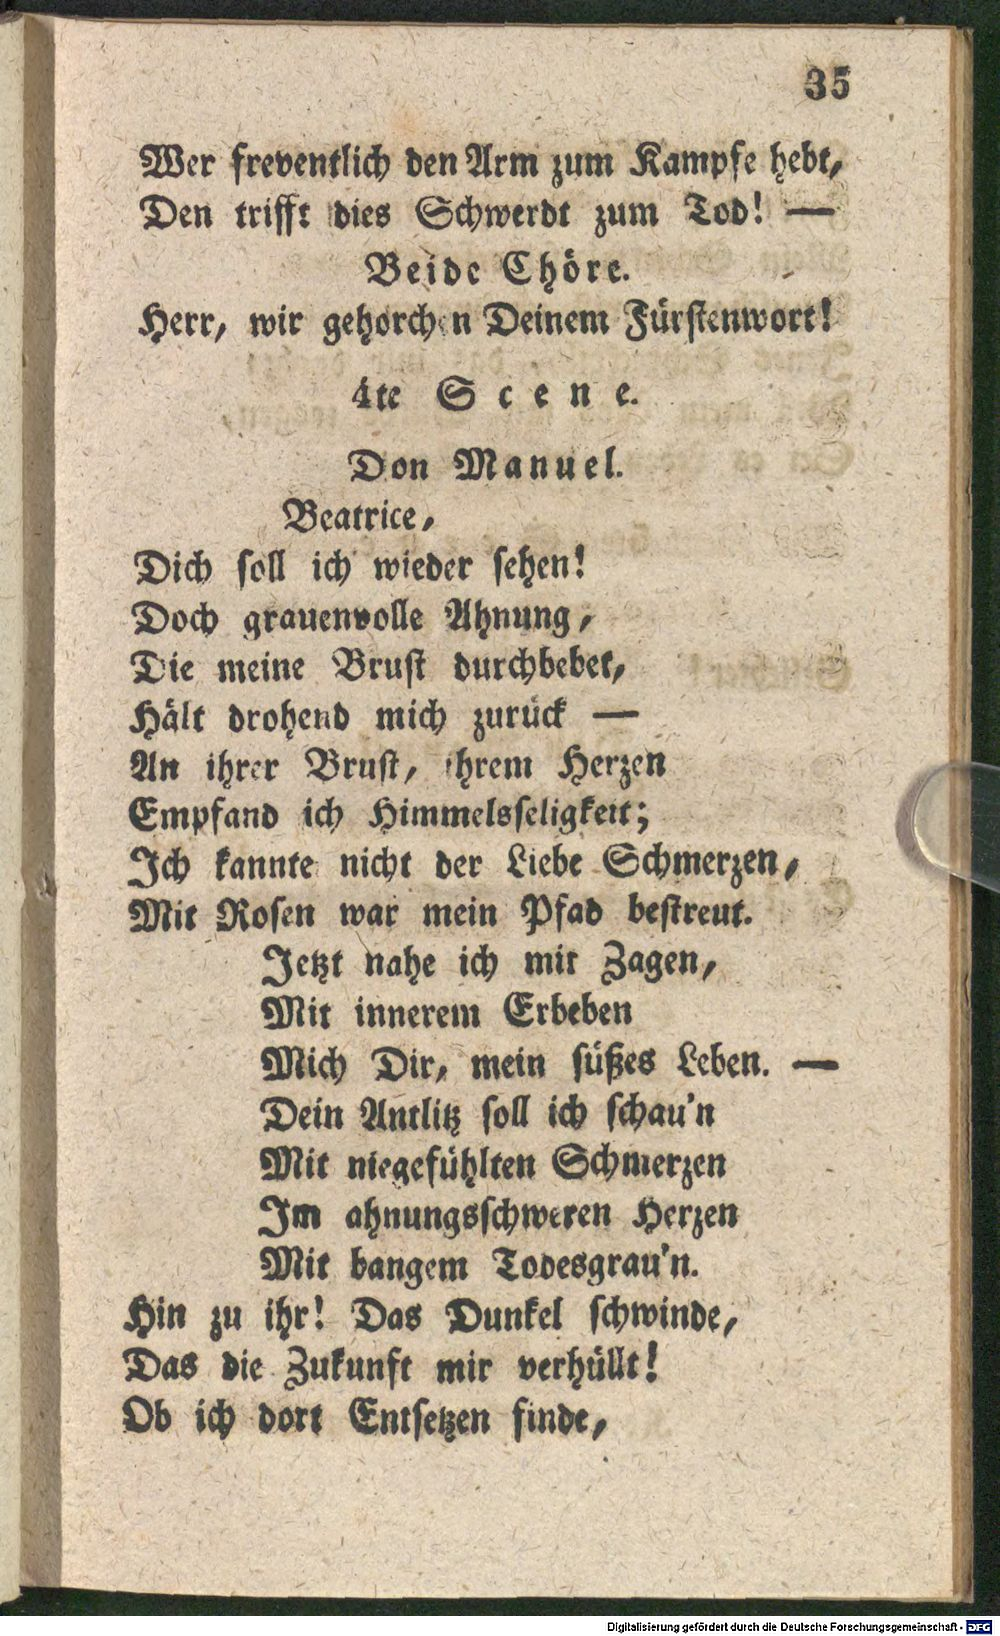 35
Wer freventlich den Arm zum Kampfe hebt,
Den trifft dies Schwerdt zum Tod! —
Beide Chöre.
Herr, wir gehorchen Deinem Fürstenwort!
4te Scene.
Don Manuel.
Beatrice,
Dich soll ich wieder sehen!
Doch grauenvolle Ahnung,
Die meine Brust durchbebet,
Hält drohend mich zurück —
An ihrer Brust, ihrem Herzen
Empfand ich Himmelsseligkeit;
Ich kannte nicht der Liebe Schmerzen,
Mit Rosen war mein Pfad bestreut.
Jetzt nahe ich mit Zagen,
Mit innerem Erbeben
Mich Dir, mein süßes Leben. —
Dein Antlitz soll ich schau'n
Mit niegefühlten Schmerzen
Im ahnungsschweren Herzen
Mit bangem Todesgrau'n.
Hin zu ihr! Das Dunkel schwinde,
Das die Zukunft mir verhüllt!
Ob ich dort Entsetzen finde,
Digitalisierung gefördert durch die Deutsche Forschungsgemeinschaft - DFG